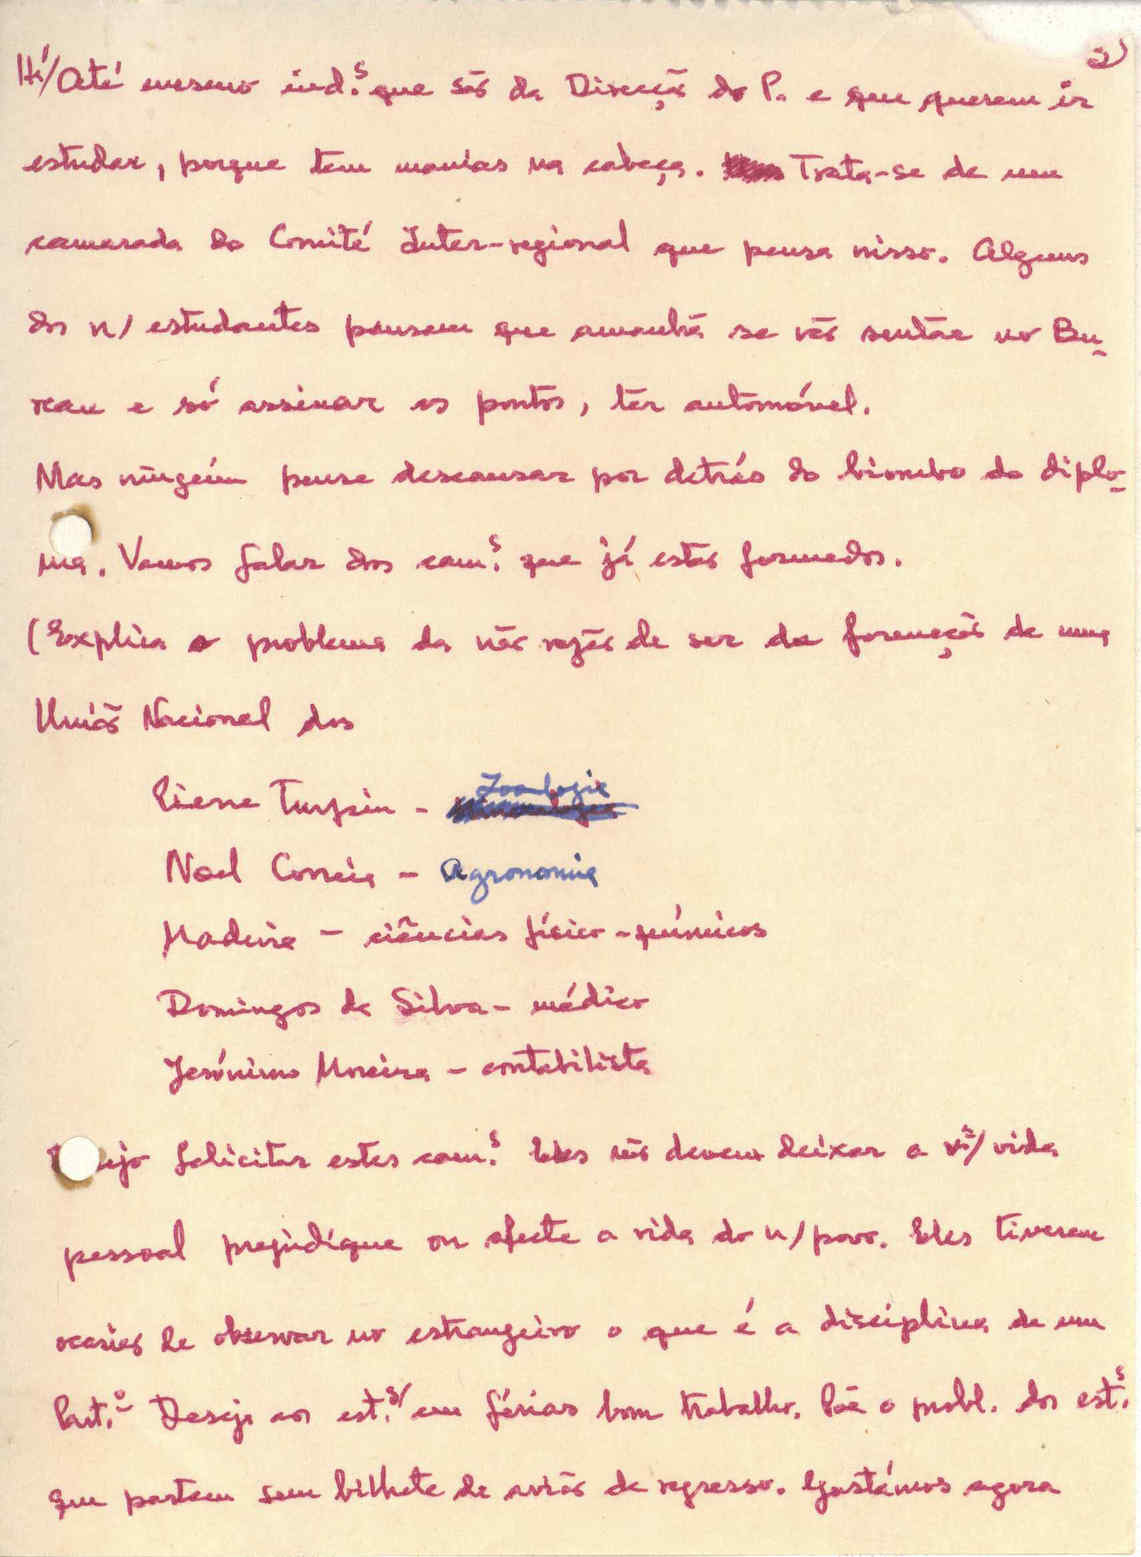 2)
Há/Até mesmo ind.s que são da Direcção do P. e que querem ir
estudar, porque tem manias na cabeça. Trata-se de um
camarada do Comité Inter-regional que pensa nisso. Alguns
dos n/ estudantes pensam que amanhã se vão sentar no Bu-
reau e só assinar os pontos, ter automóvel.
Mas ninguém pense descansar por detrás do biombo do diplo-
ma. Vamos falar dos cam.s que já estão formados.
(Explica o problema da não razão de ser da formação de uma
União Nacional dos
Pierre Turpin - Zoologie
Noel Correia - Agronomia
Madeira - ciências físico-químicos
Domingos da Silva - médico
Jerónimo Moreira - contabilista
felicitar estes cam.s Eles não devem deixar a vida
pessoal prejudique ou afecte a vida do n/povo. Eles tiveram
ocasião de observar no estrangeiro o que é a disciplina de um
Part.º Desejo aos est.s/ em férias bom trabalho. Põe o probl. dos est.s
que partem sem bilhete de avião de regresso. Gastámos agora